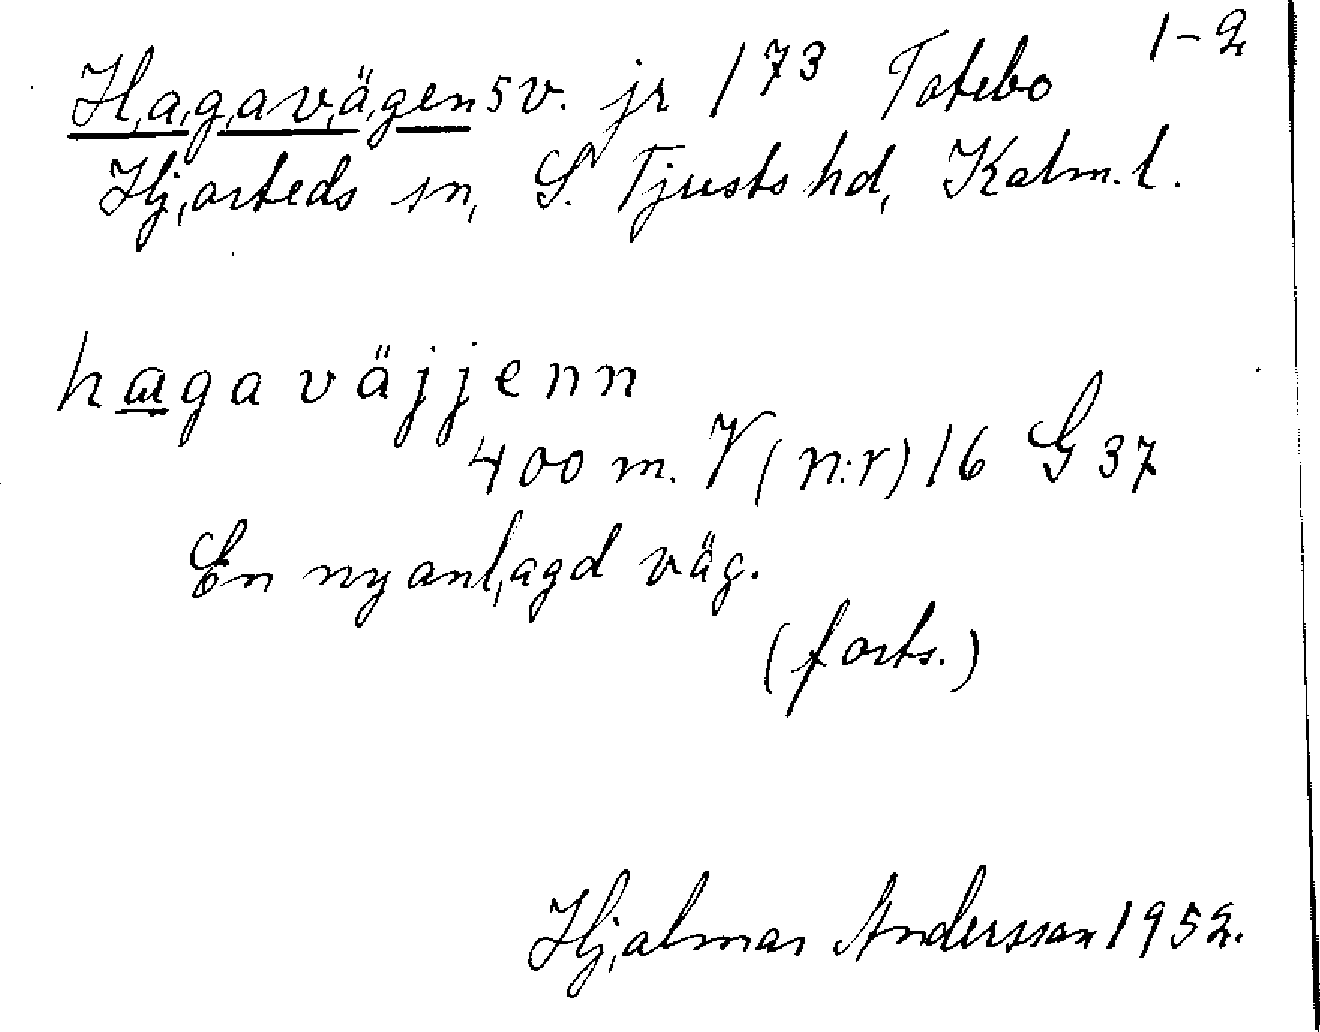 1-2
Hagavägen sv. jr 173 Totebo
Hjorteds sn, S. Tjusts hd, Kalm. l.
hagaväjjenn
400 m. V (n:r) 16 G 37
En nyanlagd väg.
(forts.)
Hjalmar Andersson 1952.